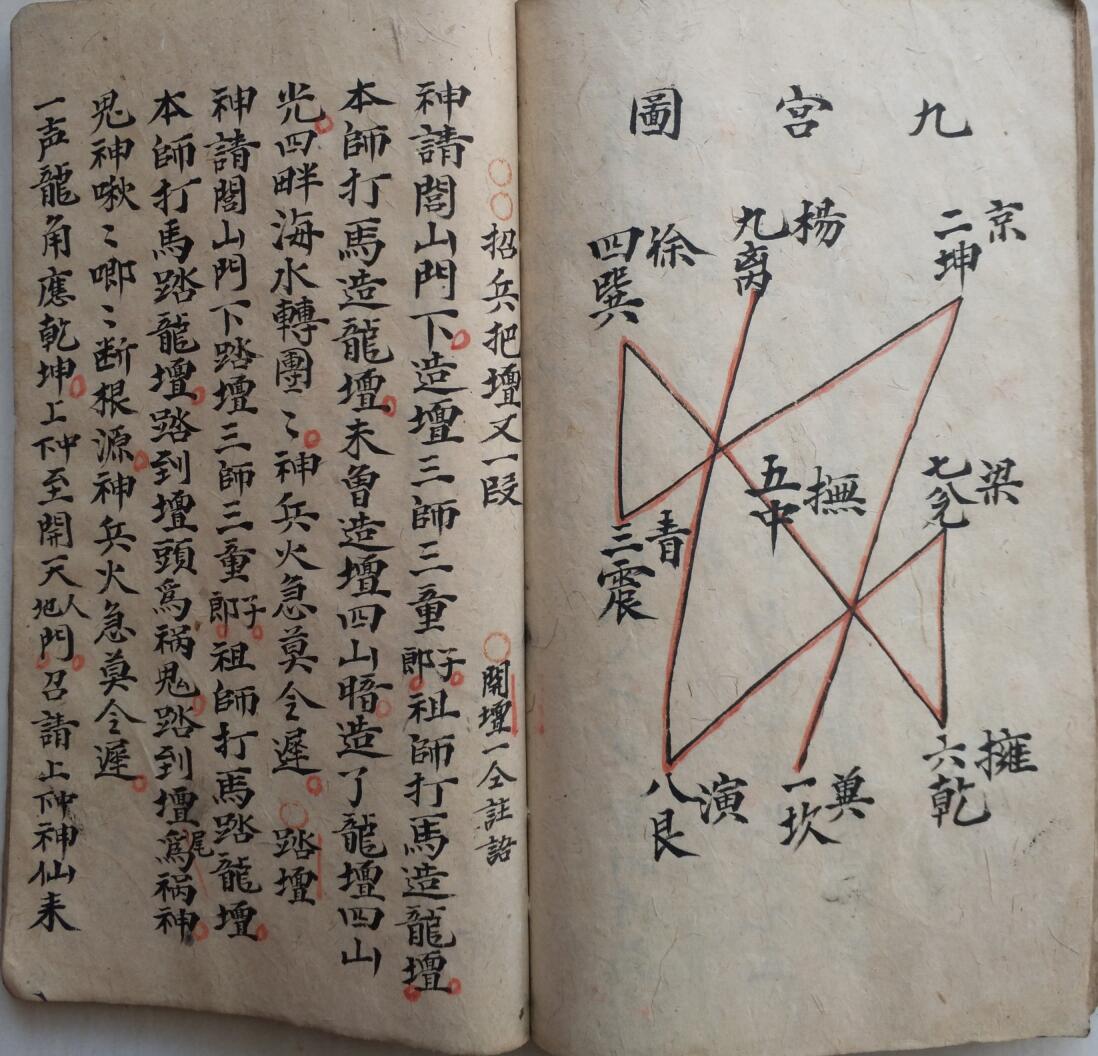 九宮圖
京
二坤
楊
九离
徐
四巽
梁
七兊
撫
五中
青
三震
擁
六乾
兾
一坎
演
八艮
招兵把壇又一段
開壇一仝註語
神請閭山門下造壇三師三童子郎祖師打馬造龍壇
本師打馬造龍壇未曾造壇四山暗造了龍壇四山
光四畔海水轉團〻神兵火急莫令遲 踏壇
神請閭山門下踏壇三師三童子郎祖師打馬踏龍壇
本師打馬踏龍壇踏到壇頭為祸鬼踏到壇尾為祸神
鬼神啾〻唧〻断根源神兵火急莫令遲
一声龍角應乾坤上中下至開天地人門召請上中下神仙来